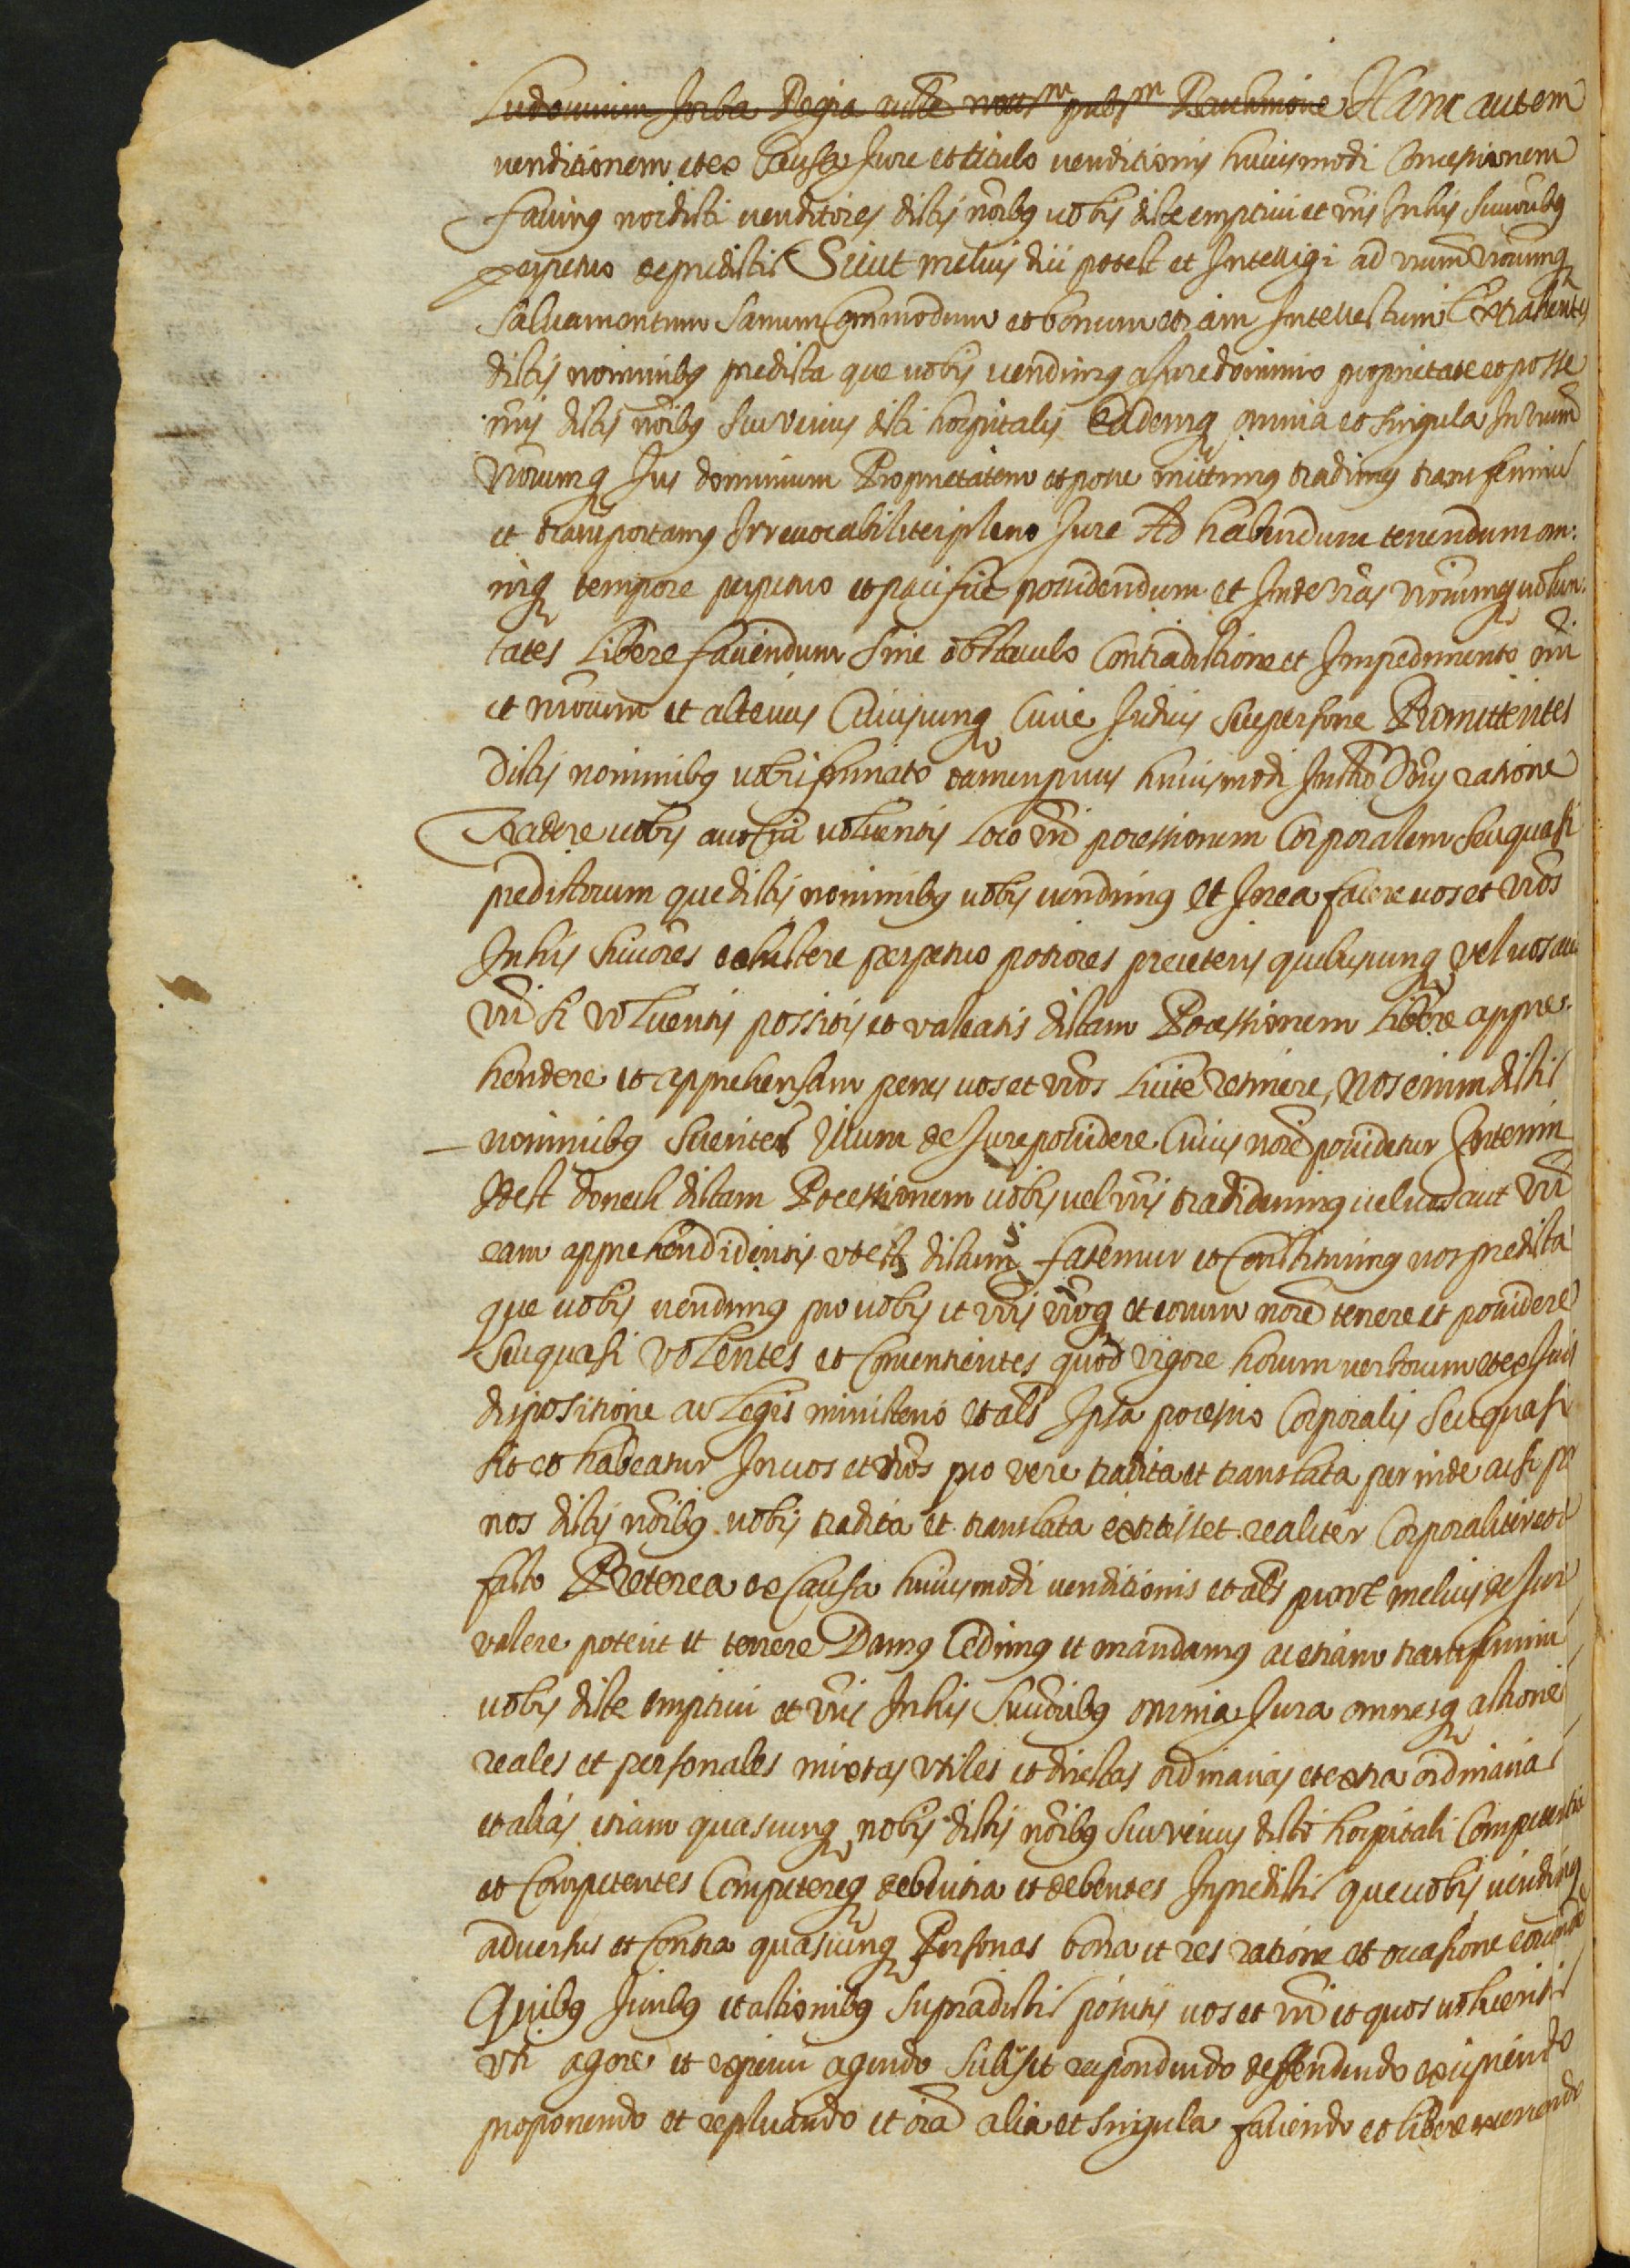 Ludovicum Jorba Regia aucte notm pubm Barchinone Hanc autem
venditionem et ex Causa Jure et titulo venditionis huiusmodi Concessionem
facimus nos dicti venditores dictis noībus vobis dicte emptrici et vrīs In his Succōribus
perpetuo de predictis Sicut melius dici potest et Intelligi ad vrūm vrōrumq
salvamentum sanum Commodum et bonum etiam Intellectum Extrahentes
dictis nominibus predicta que vobis vendimus a Jure dominio proprietate et posse
nrīs dictis noībus seu verius dicti hospitalis Eademq omnia et singula In vrūm
vrōrumq Jus dominium Proprietatem et posse mittimus tradimus transferimus
et transportamus Irrevocabiliter pleno Jure Ad habendum tenendum om:
niq tempore perpetuo et pacifice possidendum et Inde vrās vrōrumq volun-
tates Libere faciendum Sine obstaculo Contradictione et Impedimento nrī
et nrōrum et alterius Cuiuscunq Curie Judicis seu persone Promittentes
Dictis nominibus vobis firmato tamen prius huiusmodi Instrō Dn̄ii ratione
Tradere vobis aut cui volueritis Loco vrī possessionem Corporalem seu quasi
predictorum que dictis nominibus vobis vendimus Et In ea facere vos et vrōs
In his succōres existere perpetuo potiores pre ceteris quibuscunq vel vos aut
vrī si volueritis possitis et valeatis dictam Possessionem Libere appre-
hendere et apprehensam penes vos et vrōs Licite retinere, Nos enim dictis
nominibus scientes Illum de Jure possidere Cuius noīe possidetur Interim
Idest donech dictam Possessionem vobis vel vrīs tradiderimus vel vos aut vrī
eam apprehendideritis vt est dictum fatemur et Constituimus nos predicta
que vobis vendimus pro vobis et vrīs vrōq et eorum noīe tenere et possidere
Seu quasi Volentes et Consentientes quod vigore horum verborum et ex Juris
dispositione ac Legis ministerio et als Ipsa possessio Corporalis Seu quasi
sit et habeatur In vos et vrōs pro vere tradita et translata perinde ac si per
nos dictis noībus vobis tradita et translata extitisset realiter Corporaliter et de
facto Preterea ex Causa huiusmodi venditionis et als prout melius de Jure
valere poterit et tenere Damus Cedimus et mandamus ac etiam transferimus
vobis dicte emptrici et vrīs In his Succōribus omnia Jura omnesq actiones
reales et personales mixtas vtiles et directas ordinarias et extra ordinarias
et alias etiam quascunq nobis dictis noībus seu verius dicto hospitali Competentia
et Competentes Competereq debentia et debentes In predictis que vobis vendimus
adversus et Contra quascunq Personas bona et res ratione et occasione eorundem
Quibus Juribus et actionibus supradictis possitis vos et vrī et quos volueritis
vti agere et experiri agendo scilicet respondendo deffendendo excipiendo
proponendo et replicando et oīa alia et singula faciendo et libere exercendo